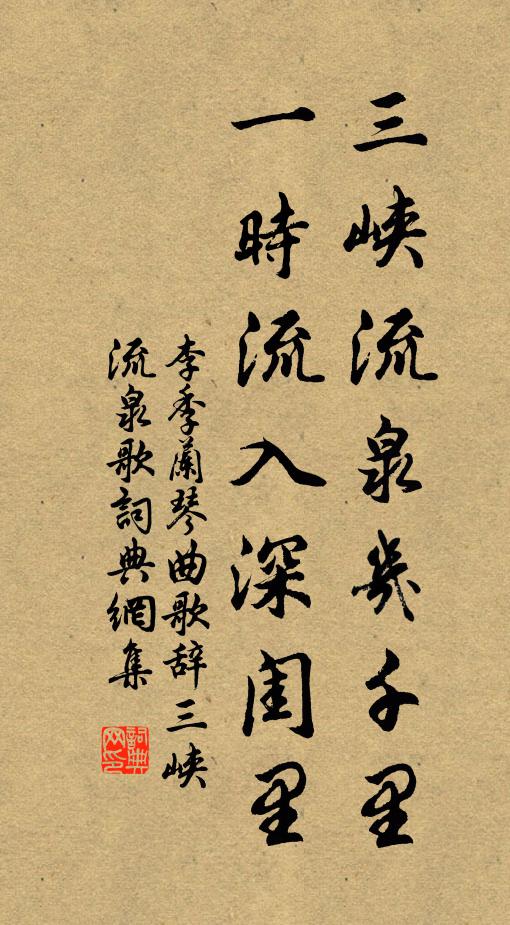 三峽流泉幾千里
一時流入深閨里
李季蘭琴曲歌辞三峽
流泉歌詞典網集
詞典网印